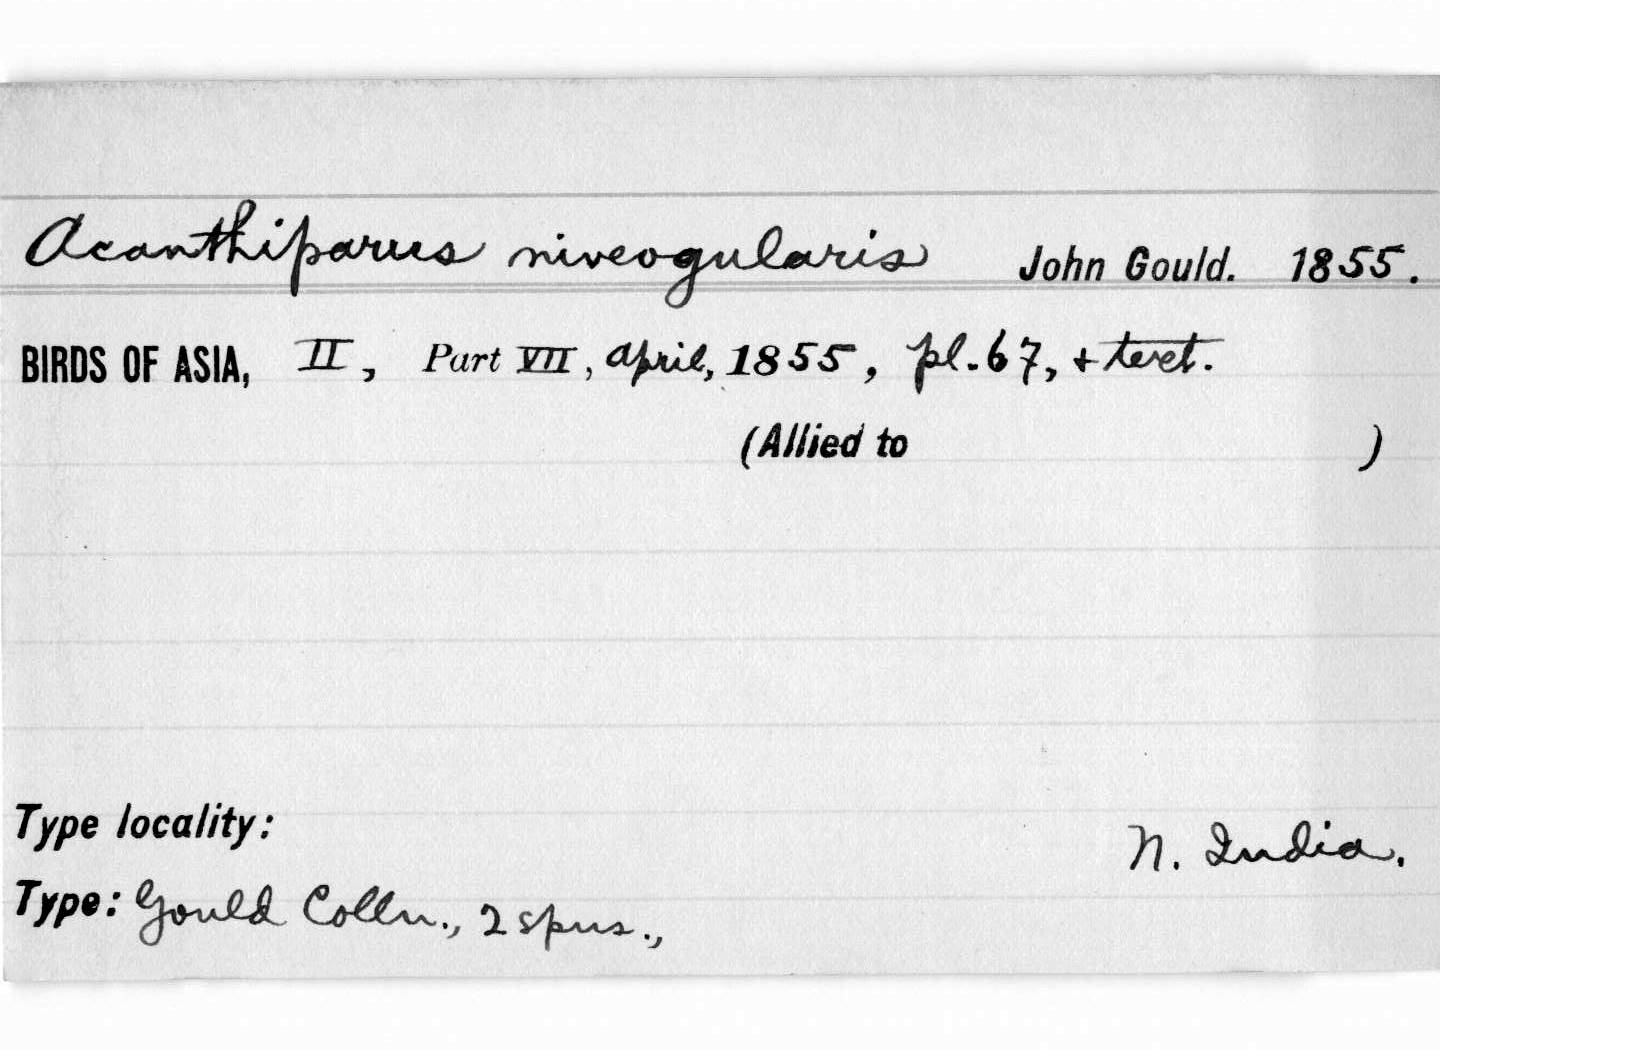 Acanthiparus niveogularis John Gould. 1855.
BIRDS OF ASIA, II, Part VII, April, 1855, pl. 67, + text.
(Allied to )
Type locality:
N. India.
Type: Gould Colln., 2 spns.,